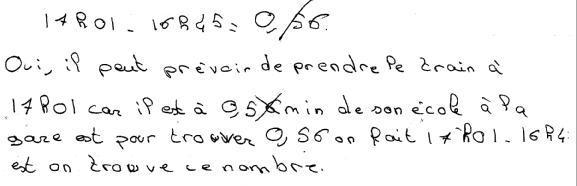 17h01 - 16h45 = 0,56.
Oui, il peut prévoir de prendre le train à
17h01 car il est à 0,56 min de son école à la
gare est pour trouver 0,56 on fait 17h01 - 16h4
est on trouve ce nombre.